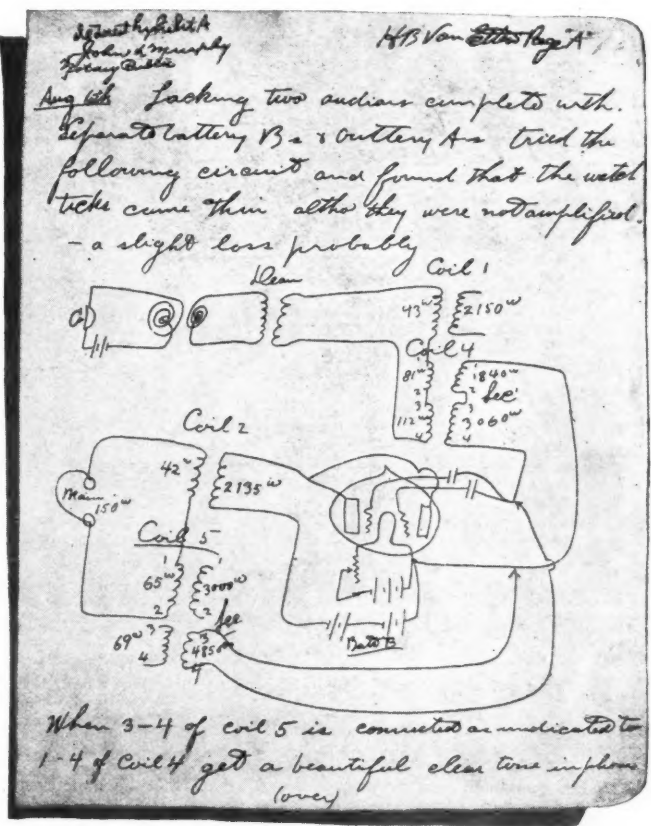 John & Murphy
Notary Public
H B Van Etten Page "A"
Aug 6th Lacking two audions complete with
Separate battery Bs & battery As tried the
following circuit and found that the watch
ticks came thru altho they were not amplified.
- a slight loss probably
Coil 1
43ω 2150ω
Coil 4
81ω 1 1 1840ω
2 2 Sec
3 3 3060ω
112ω 4 4
Coil 2
42ω 2135ω
150ω
Coil 5
65ω 1 1 3000ω
2 2 Sec
69ω 3 3 4850ω
4 4
Batt B
When 3-4 of coil 5 is connected as indicated to
1-4 of Coil 4 get a beautiful clear tone in phone
(over)